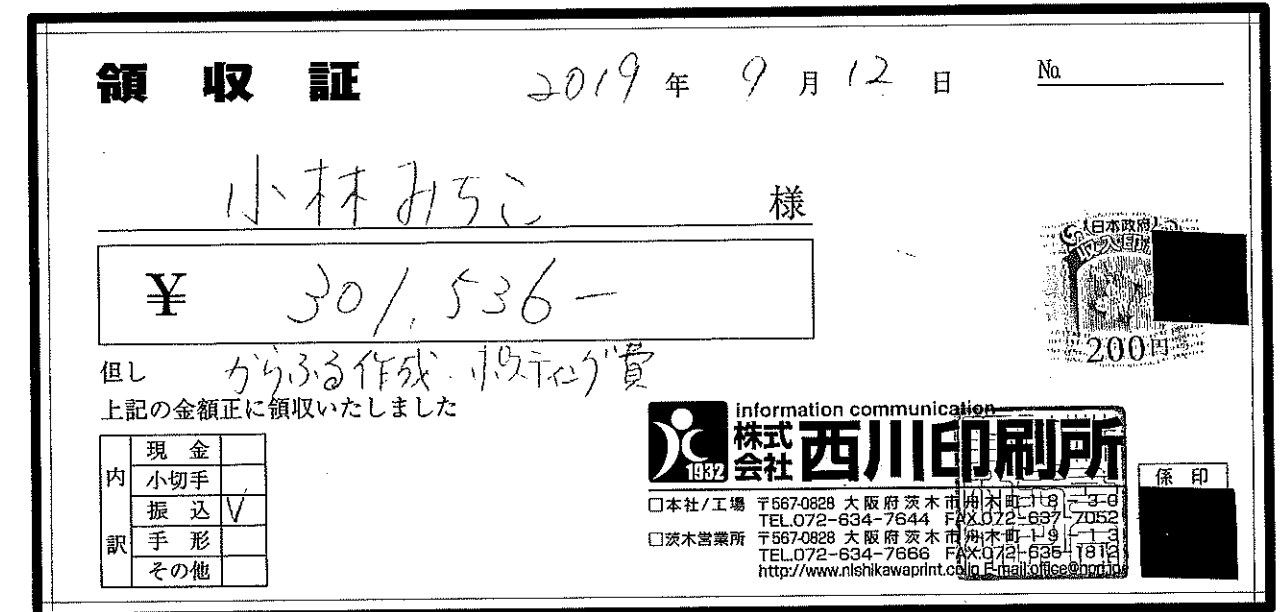 領収証 2019年9月12日 No.
小林みちこ 様
¥ 301,536-
但し からふる作成・ポスティング費
上記の金額正に領収いたしました
内訳
現金
小切手
振込 V
手形
その他
日本政府
収入印紙
200円
information communication
1932 株式会社 西川印刷所
□本社/工場 〒567-0828 大阪府茨木市舟木町18-30
TEL.072-634-7644 FAX.072-637-7052
□茨木営業所 〒567-0828 大阪府茨木市舟木町19-13
TEL.072-634-7666 FAX.072-635-1812
http://www.nishikawaprint.co.jp E-mail:office@npri.jp
係印